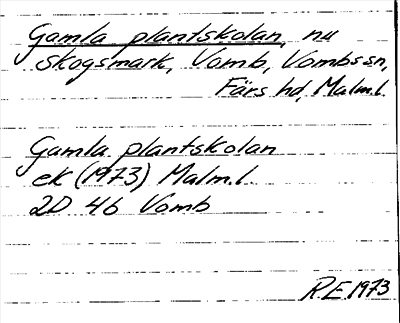 Gamla plantskolan, nu
skogsmark, Vomb, Vombs sn,
Färs hd, Malm.l.
Gamla plantskolan
ek (1973) Malm.l.
2D 4b Vomb
R.E. 1973